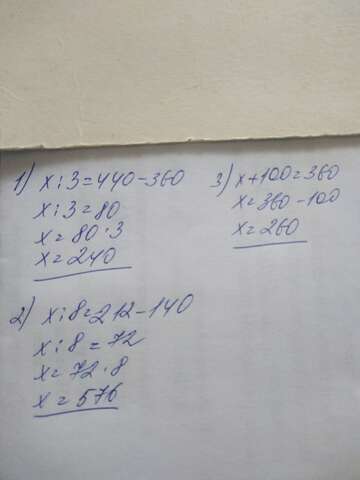 1) x:3=440-360
x:3=80
x=80·3
x=240
2) x:8=212-140
x:8=72
x=72·8
x=576
3) x+100=360
x=360-100
x=260